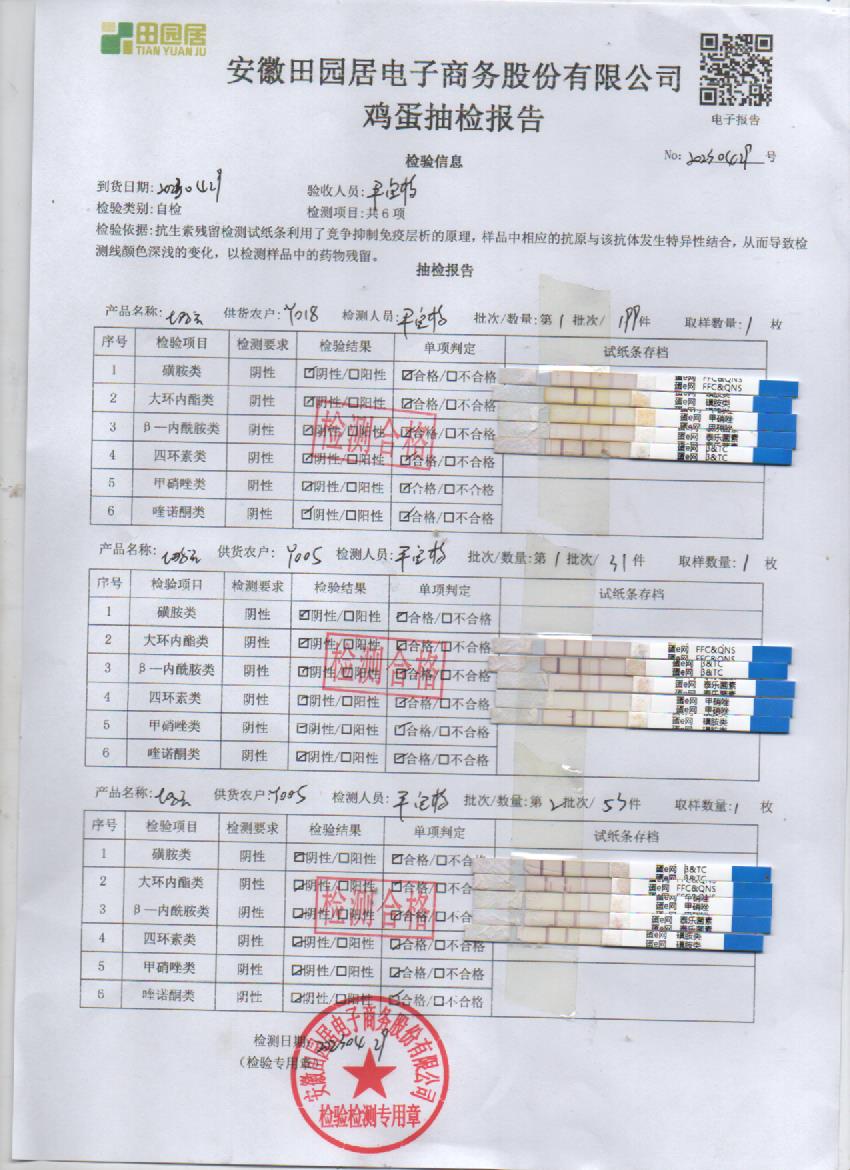 田园居
TIAN YUAN JU
安徽田园居电子商务股份有限公司
鸡蛋抽检报告
电子报告
检验信息
No: 20230429 号
到货日期: 20230429 验收人员:
检验类别: 自检 检测项目: 共 6 项
检验依据: 抗生素残留检测试纸条利用了竞争抑制免疫层析的原理，样品中相应的抗原与该抗体发生特异性结合，从而导致检
测线颜色深浅的变化，以检测样品中的药物残留。
抽检报告
产品名称: 供货农户: Y018 检测人员: 批次/数量: 第 1 批次/ 199 件 取样数量: 1 枚
序号 检验项目 检测要求 检验结果 单项判定 试纸条存档
1 磺胺类 阴性 ☑阴性/□阳性 ☑合格/□不合格
2 大环内酯类 阴性 ☑阴性/□阳性 ☑合格/□不合格
3 β—内酰胺类 阴性 ☑阴性/□阳性 ☑合格/□不合格
4 四环素类 阴性 ☑阴性/□阳性 ☑合格/□不合格
5 甲硝唑类 阴性 ☑阴性/□阳性 ☑合格/□不合格
6 喹诺酮类 阴性 ☑阴性/□阳性 ☑合格/□不合格
检测合格
蛋e网 FFC&QNS
蛋e网 磺胺类
蛋e网 甲硝唑
蛋e网 泰乐菌素
蛋e网 β&TC
产品名称: 供货农户: Y005 检测人员: 批次/数量: 第 1 批次/ 31 件 取样数量: 1 枚
序号 检验项目 检测要求 检验结果 单项判定 试纸条存档
1 磺胺类 阴性 ☑阴性/□阳性 ☑合格/□不合格
2 大环内酯类 阴性 ☑阴性/□阳性 ☑合格/□不合格
3 β—内酰胺类 阴性 ☑阴性/□阳性 ☑合格/□不合格
4 四环素类 阴性 ☑阴性/□阳性 ☑合格/□不合格
5 甲硝唑类 阴性 ☑阴性/□阳性 ☑合格/□不合格
6 喹诺酮类 阴性 ☑阴性/□阳性 ☑合格/□不合格
检测合格
蛋e网 FFC&QNS
蛋e网 β&TC
蛋e网 泰乐菌素
蛋e网 甲硝唑
蛋e网 磺胺类
产品名称: 供货农户: Y005 检测人员: 批次/数量: 第 2 批次/ 55 件 取样数量: 1 枚
序号 检验项目 检测要求 检验结果 单项判定 试纸条存档
1 磺胺类 阴性 ☑阴性/□阳性 ☑合格/□不合
2 大环内酯类 阴性 ☑阴性/□阳性 ☑合格/□不合
3 β—内酰胺类 阴性 ☑阴性/□阳性 ☑合格/□不合
4 四环素类 阴性 ☑阴性/□阳性 ☑合格/□不合格
5 甲硝唑类 阴性 ☑阴性/□阳性 ☑合格/□不合格
6 喹诺酮类 阴性 ☑阴性/□阳性 ☑合格/□不合格
检测合格
蛋e网 β&TC
蛋e网 FFC&QNS
蛋e网 甲硝唑
蛋e网 泰乐菌素
蛋e网 磺胺类
检测日期: 20230429
（检验专用章）
安徽田园居电子商务股份有限公司
检验检测专用章